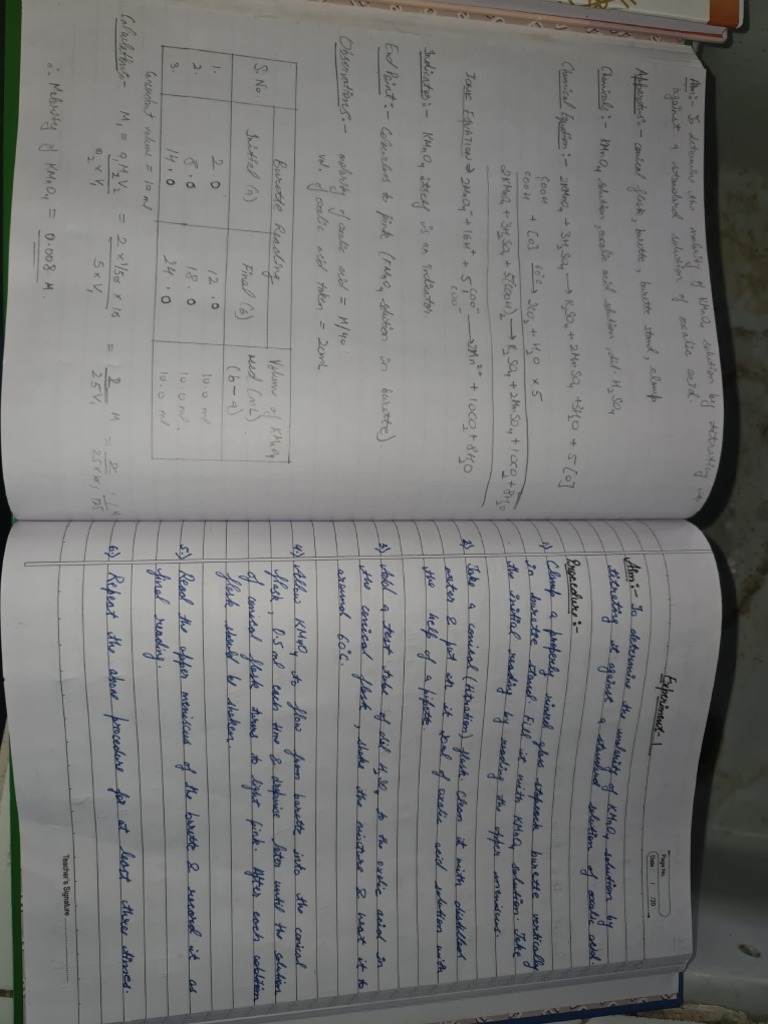 Aim:- To determine the molarity of KMnO4 solution by titrating it
against a standard solution of oxalic acid.
Apparatus:- conical flask, burette, burette stand, clamp
Chemicals:- KMnO4 solution, oxalic acid solution, dil. H2SO4
Chemical Equation:- 2KMnO4 + 3H2SO4 → K2SO4 + 2MnSO4 + 3H2O + 5[O]
COOH
COOH + [O] → 2CO2 + H2O × 5
2KMnO4 + 3H2SO4 + 5(COOH)2 → K2SO4 + 2MnSO4 + 10CO2 + 8H2O
Ionic EQUATION → 2MnO4⁻ + 16H⁺ + 5 COO⁻ → 2Mn²⁺ + 10CO2 + 8H2O
COO⁻
Indicator:- KMnO4 itself is an indicator
End Point:- Colourless to pink (KMnO4 solution in burette).
Observations:- molarity of oxalic acid = M/40
vol. of oxalic acid taken = 20ml
S.No Burette Reading Volume of KMnO4
Initial (a) Final (b) used (mL)
(b-a)
1. 2.0 12.0 10.0 ml
2. 8.0 18.0 10.0 ml.
3. 14.0 24.0 10.0 ml
Concordant volume = 10 ml
Calculations:- M1 = a2M2V2 = 2 × 1/50 × 10 = M =
V1 5 × V1 25V1
∴ Molarity of KMnO4 = 0.008 M.
Page No.
Date / /20
Experiment-1
Aim:- To determine the molarity of KMnO4 solution by
titrating it against a standard solution of oxalic acid.
Procedure:-
1) Clamp a properly rinsed glass stopcock burette vertically
in burette stand. Fill it with KMnO4 solution. Take
the initial reading by reading the upper meniscus.
2) Take a conical (titration) flask. Clean it with distilled
water & put in it 20ml of oxalic acid solution with
the help of a pipette.
3) Add a test tube of dil H2SO4 to the oxalic acid in
the conical flask, shake the mixture & heat it to
around 60°C.
4) Allow KMnO4 to flow from burette into the conical
flask, 0.5 ml each time & dropwise later until the solution
of conical flask turns to light pink. After each addition
flask should be shaken.
5) Read the upper meniscus of the burette & record it as
final reading.
6) Repeat the above procedure for at least three times.
Teacher's Signature